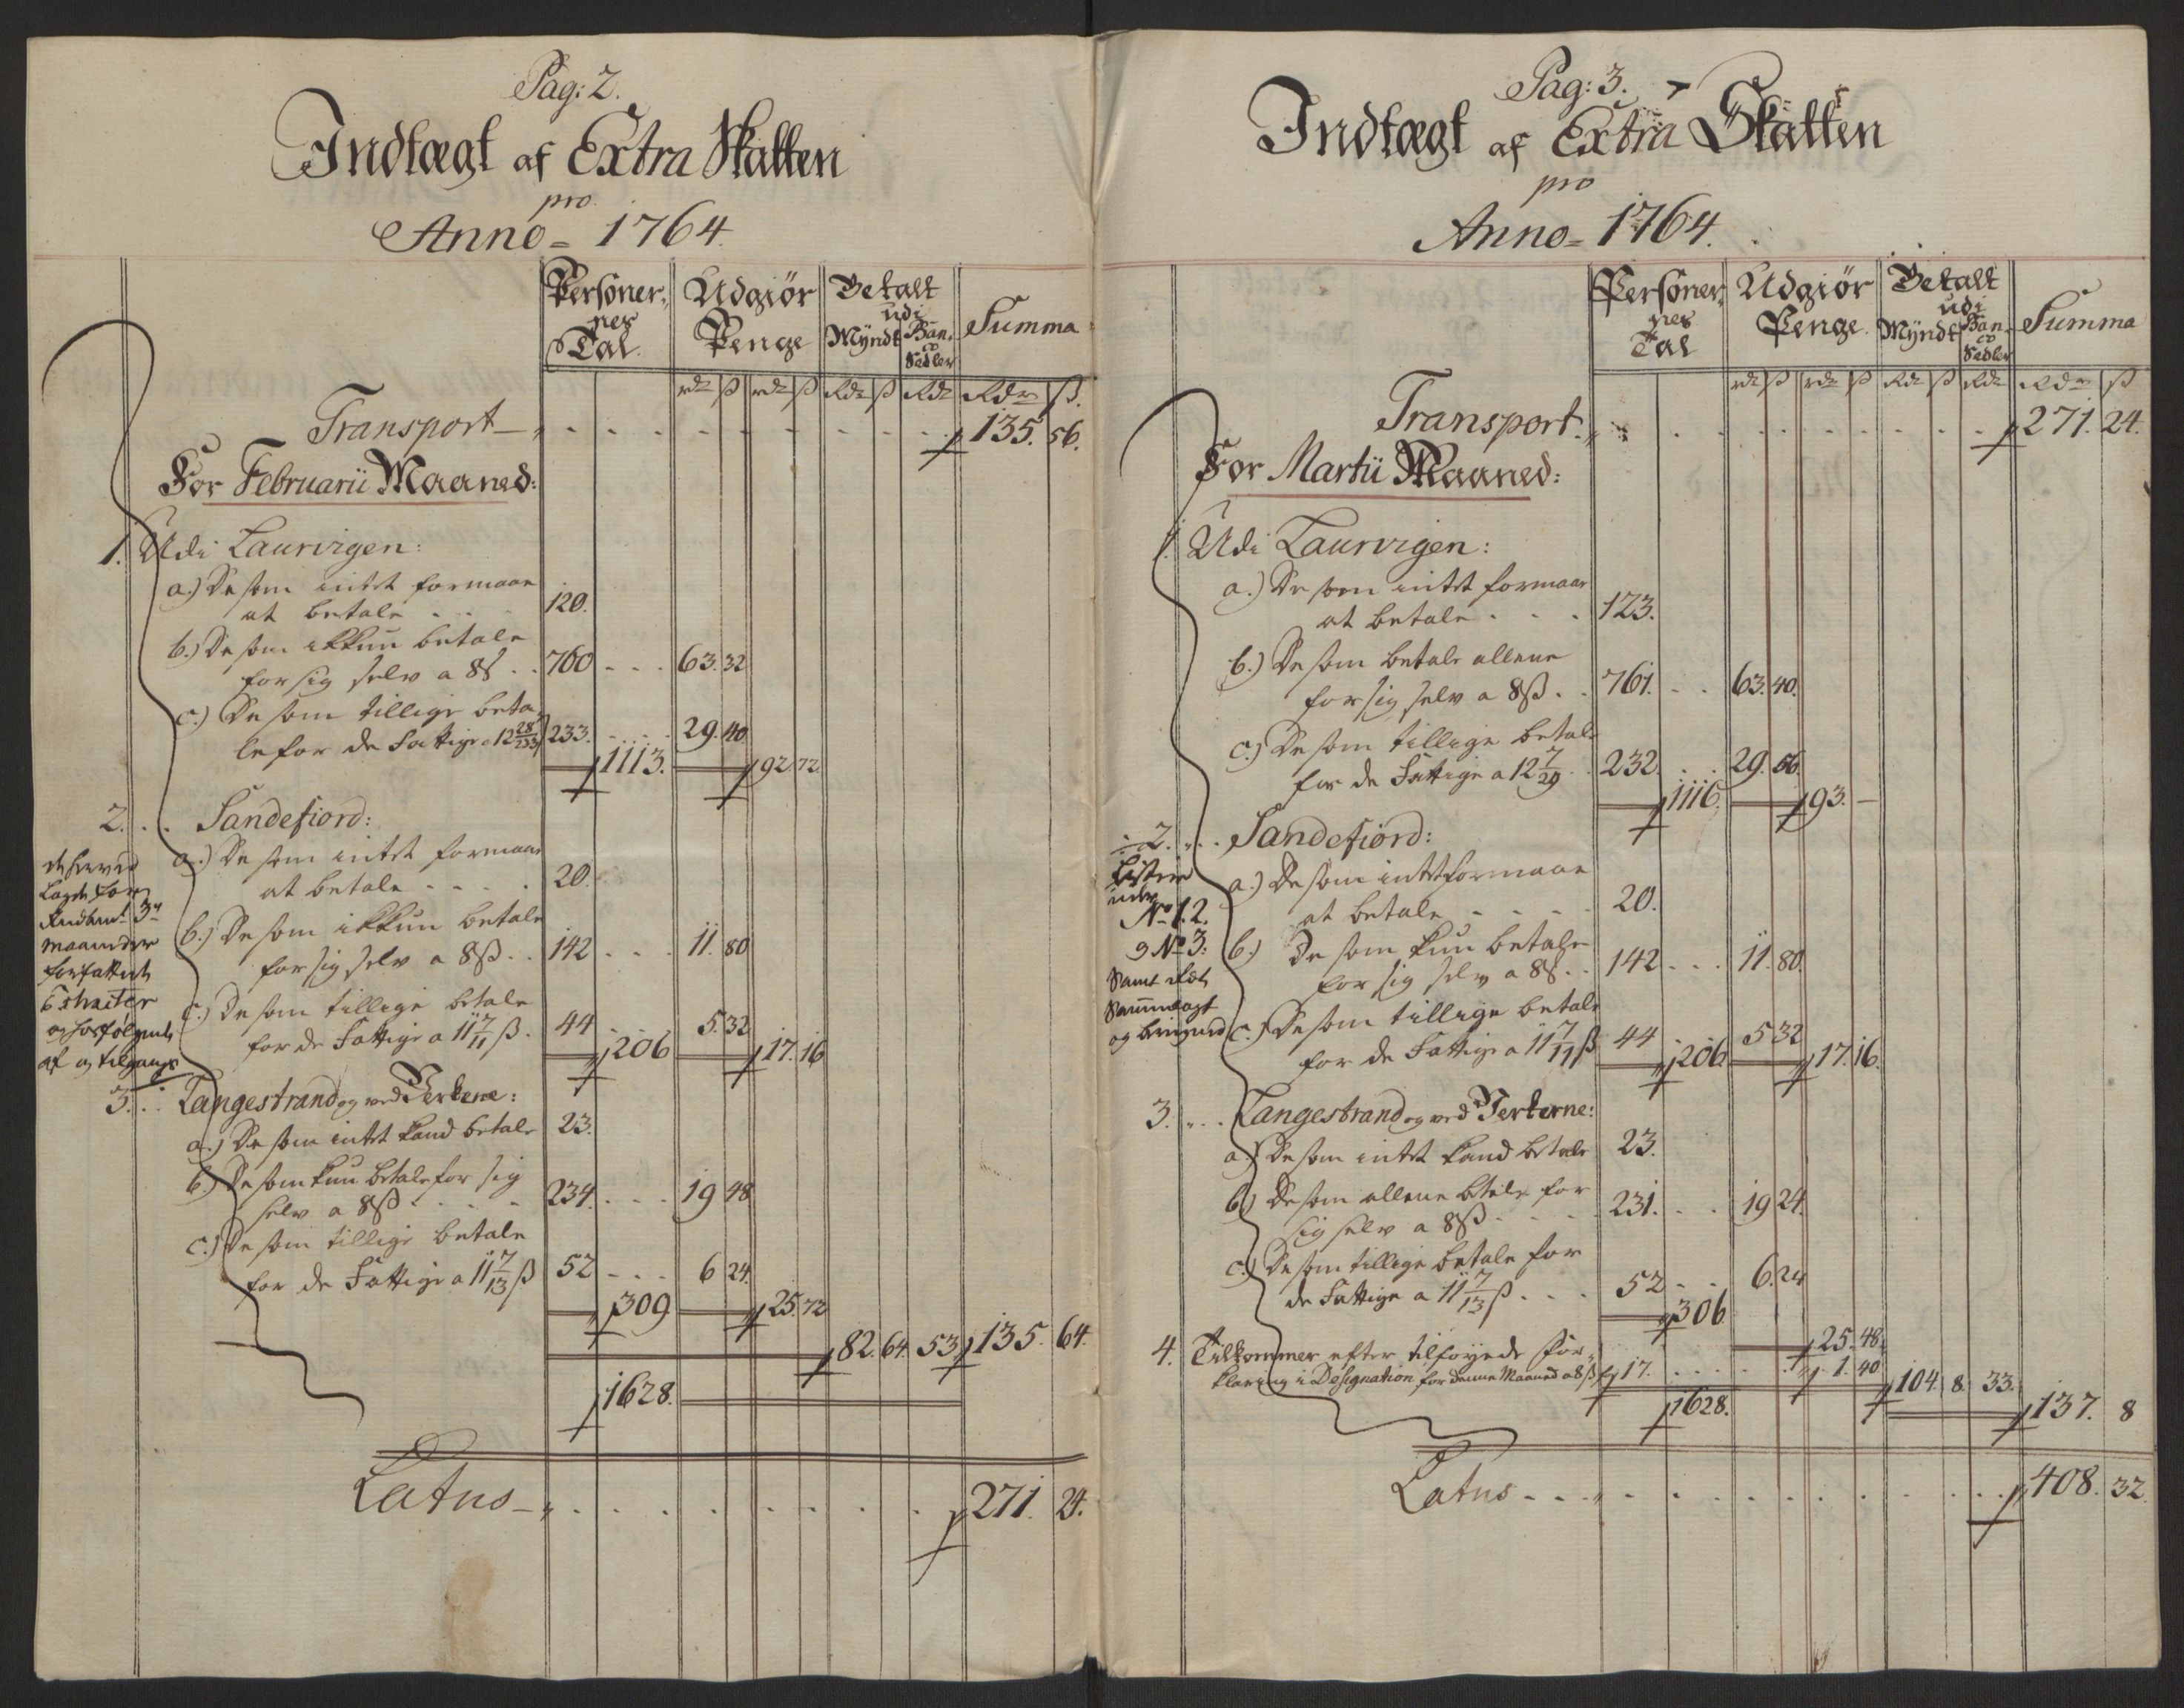 Pag: 2.
Indtægt af Extra Skatten
pro
Anno = 1764.
Personer,, Udgiør Betalt
nes Penge udi Summa
Tal. Myndt Ban,,
co
Sedler
rdr ß rdr ß Rdr ß Rdr Rdr ß.
Transport 135. 56.
For Februarii Maaned:
1. Udi Laurvigen:
a.) De som intet formaar
at betale 120.
b.) De som ikkun betale
for sig selv a 8ß 760 63. 32
c.) De som tillige beta,,
le for de Fattige a 12 28/233 233. 29. 40
1113. 92 72
2. Sandefiord:
a.) De som intet formaar
at betale 20.
b.) De som ikkun betale
for sig selv a 8ß 142 11. 80
c.) De som tillige betale
for de Fattige a 11 7/11 ß. 44 5. 32
206 17. 16
3. Langestrand og ved Verkerne:
a.) De som intet kand betale 23.
b.) De som kun betale for sig
selv a 8ß 234. 19 48
c.) De som tillige betale
for de Fattige a 11 7/13 ß 52 6 24.
309 25. 72
82. 64. 53 135. 64.
1628.
Latus 271. 24.
maaneder
forfattede
Extracter
og hosfølgende
af og tilgangs
Pag: 3.
Indtægt af Extra Skatten
pro
Anno = 1764.
Personer,, Udgiør Betalt
nes Penge. udi Summa
Tal Myndt Ban,,
co
Sedler
rdr ß rdr ß Rdr ß Rdr Rdr ß
Transport. 271. 24.
For Martii Maaned:
1. Udi Laurvigen:
a.) De som intet formaar
at betale 123.
b.) De som betale allene
for sig selv a 8ß. 761. 63. 40.
c.) De som tillige betale
for de Fattige a 12 7/29 232. 29. 56.
1116. 93. –
2. Sandefiord:
a.) De som intet formaar
at betale 20.
b.) De som kun betale
for sig selv a 8ß 142 11. 80.
c.) De som tillige betale
for de Fattige a 11 7/11 ß 44 5 32
206 17. 16.
3. Langestrand og ved Verkerne:
a.) De som intet kand betale 23.
b.) De som allene betale for
sig selv a 8ß 231. 19 24.
c.) De som tillige betale for
de Fattige a 11 7/13 ß 52 6. 24
306
25. 48.
4. Tilkommer efter tilføyede For,,
klaring i Designation for denne Maaned a 8ß 17. 1. 40 104. 8. 33.
1628. 137. 8
Latus 408. 32.
Listerne
under
No 1. 2.
og No 3:
Samt